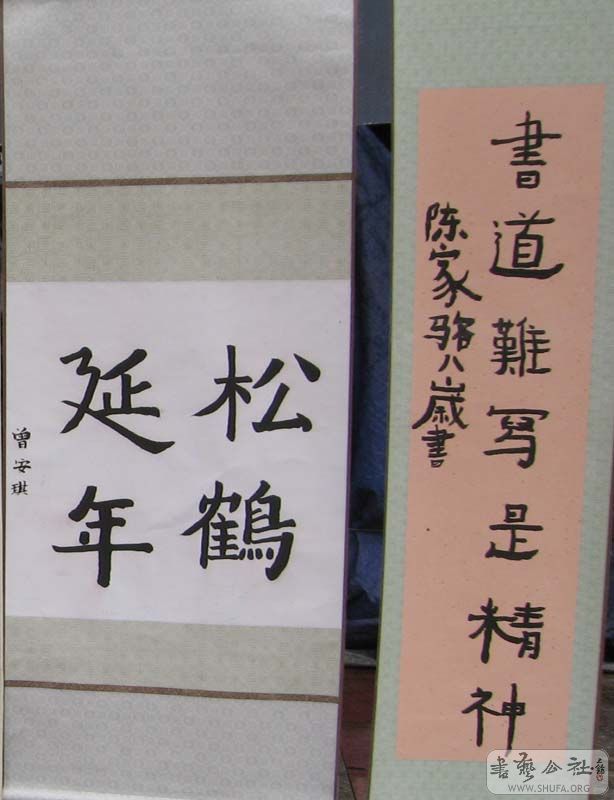 書道難寫是精神
陈家骆八歲書
松鶴
延年
曾安琪
书艺公社
WWW.SHUFA.ORG